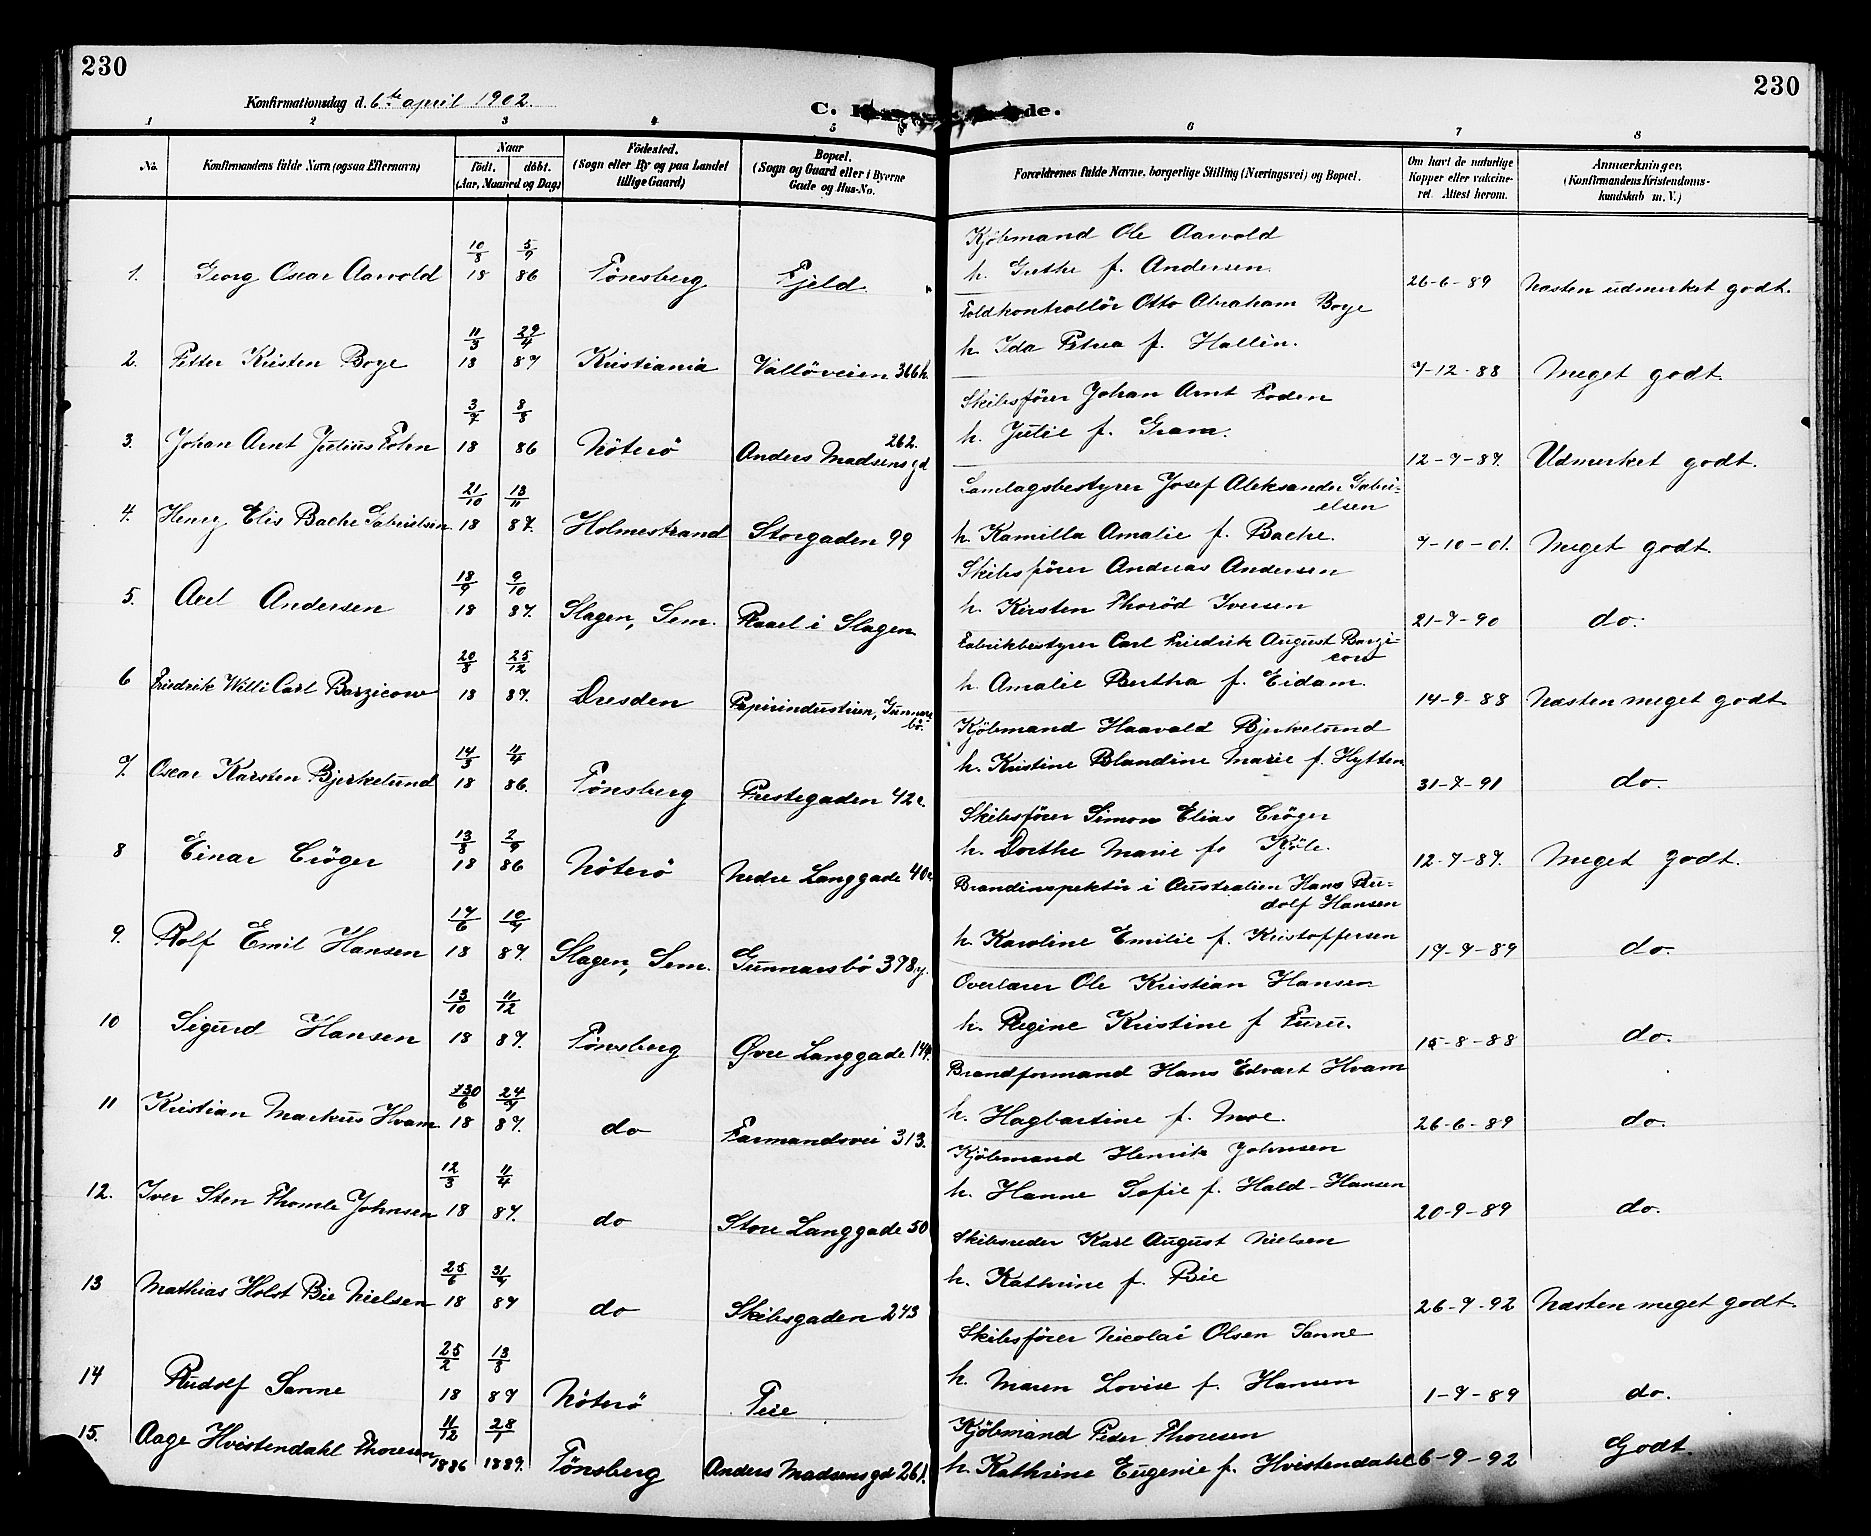 230
230
Konfirmationsdag d. 6te april 1902.
C. de.
1 2 3 4 5 6 7 8
No.
Konfirmandens fulde Navn (ogsaa Efternavn)
Naar
født. døbt.
(Aar, Maaned og Dag)
Fødested.
(Sogn eller By og paa Landet
tillige Gaard)
Bopæl.
(Sogn og Gaard eller i Byerne
Gade og Hus-No.
Forældrenes fulde Navne, borgerlige Stilling (Næringsvei) og Bopæl.
Om havt de naturlige
Kopper eller vakcine-
ret. Attest herom.
Anmærkninger.
(Konfirmandens Kristendoms-
kundskab m. V.)
Kjöbmand Ole Aarvold
1. Georg Oscar Aarvold 10/8 18 5/9 86 Tønsberg Fjeld h. Grethe f. Andersen. 26-6-89 Næsten udmerket godt.
Toldkontrollör Otto Abraham Boye
2. Petter Kristen Boye 11/3 18 29/4 87 Kristiania Vallöveien 366h. h. Ida Petrea f. Hallin. 7-12-88 Meget godt.
Skibsfører Johan Arnt Foden
3. Johan Arnt Julius 3/7 18 8/8 86 Nöterö Anders Madsens gd 262. h. Julie f. Gram. 12-7-87. Udmerket godt.
Samlagsbestyrer Josef Aleksander Gabri-
elsen
4. Henry Elis Bache Gabrielsen 21/10 18 13/11 87. Holmestrand Storgaden 99 h. Kamilla Amalie f. Bache. 7-10-01. Meget godt.
Skibsfører Andreas Andersen
5. Axel Andersen 18/9 18 9/10 87. Slagen, Sem. Raael i Slagen h. Kirsten Thorød Iversen 21-7-90 do.
Fabrikbestyrer Carl Friedrik August Barzi-
cow
6 Friedrik Willi Carl Barzicow 20/8 18 25/12 87. Dresden Papirindustrien, Gunnars-
bö. h. Amalie Bertha f. Eidam. 14-9-88 Næsten meget godt.
Kjöbmand Haavald Bjerkelund
7. Oscar Karsten Bjerkelund 14/3 18 11/4 86. Tønsberg Prestegaden 42c. h. Kristine Blandine Marie f. Hytten 31-7-91 do.
Skibsfører Simon Elias Cröger
8 Einar Cröger 13/8 18 2/9 86 Nöterö Nedre Langgade 40c. h. Dorthe Marie f. 12-7-87. Meget godt.
Brandinspektör i Australien Hans Ru-
dolf Hansen
9. Rolf Emil Hansen 17/6 18 10/7 87. Slagen, Sem. Gunnarsbö 378y. h. Karoline Emilie f. Kristoffersen 17-7-89 do.
Overlærer Ole Kristian Hansen
10 Sigurd Hansen 13/10 18 11/12 87. Tønsberg Øvre Langgade 144. h. Regine Kristine f Furu. 15-8-88 do.
Brandformand Hans Edvart Hvam
11 Kristian Markus Hvam 30/6 18 24/7 87. do Farmandsvei 313. h. Hagbartine f. Moe. 26-6-89 do.
Kjöbmand Henrik Johnsen
12. Iver Sten Thomle Johnsen 12/3 18 11/4 87. do Store Langgade 50 h. Hanne Sofie f. Hald-Hansen 20-9-89 do.
Skibsreder Karl August Nielsen
13 Mathias Holst Bie Nielsen 25/6 18 31/7 87 do Skibsgaden 243 h. Kathrine f. Bie 26-7-92 Næsten meget godt.
Skibsfører Nicolai Olsen Sanne
14 Rudolf Sanne 25/2 18 13/3 87 Nöterö Teie h. Maren Lovise f. Hansen 1-7-89 do.
Kjöbmand Peder Thoresen
15. Aage Hvistendahl Thoresen 11/12 1886 28/1 1889. Tønsberg Anders Madsens gd 261. h. Kathrine Eugenie f. Hvistendahl 6-9-92 Godt.